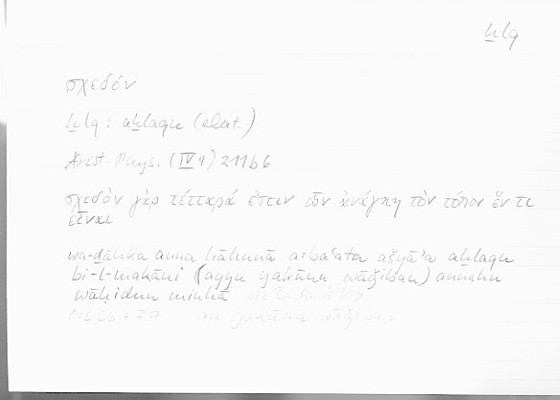 ḫlq
σχεδόν
ḫlq : aḫlaqu (elat.)
Arist. Phys. (IV 4) 211b6
σχεδὸν γὰρ τέτταρά ἐστιν ὧν ἀνάγκη τὸν τόπον ἕν τι
εἶναι
wa-ḏālika anna hāhunā arbaʿata ašyāʾa aḫlaqu
bi-l-makāni (ayyu yakūnu wāǧiban) annahu
wāḥidun minhā
yakūna wāǧiban